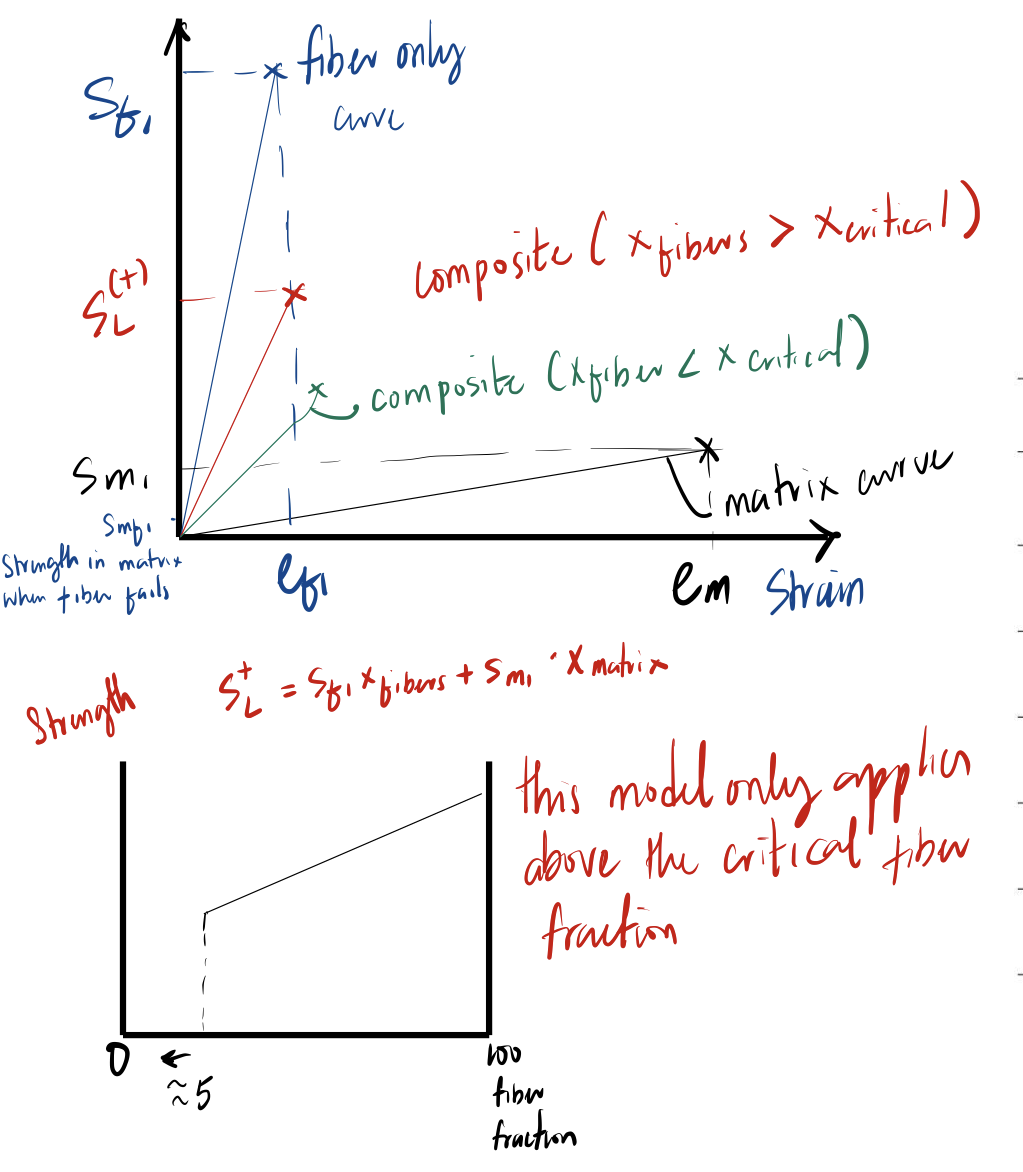 fiber only
curve
Sf1
composite ( xfibers > xcritical )
SL(+)
composite (xfiber < x critical)
Sm1
matrix curve
Smf1
Strength in matrix
when fiber fails
ef1
em
Strain
SL+ = Sf1 xfibers + Sm1 · xmatrix
Strength
this model only applies
above the critical fiber
fraction
0
←
≈5
100
fiber
fraction